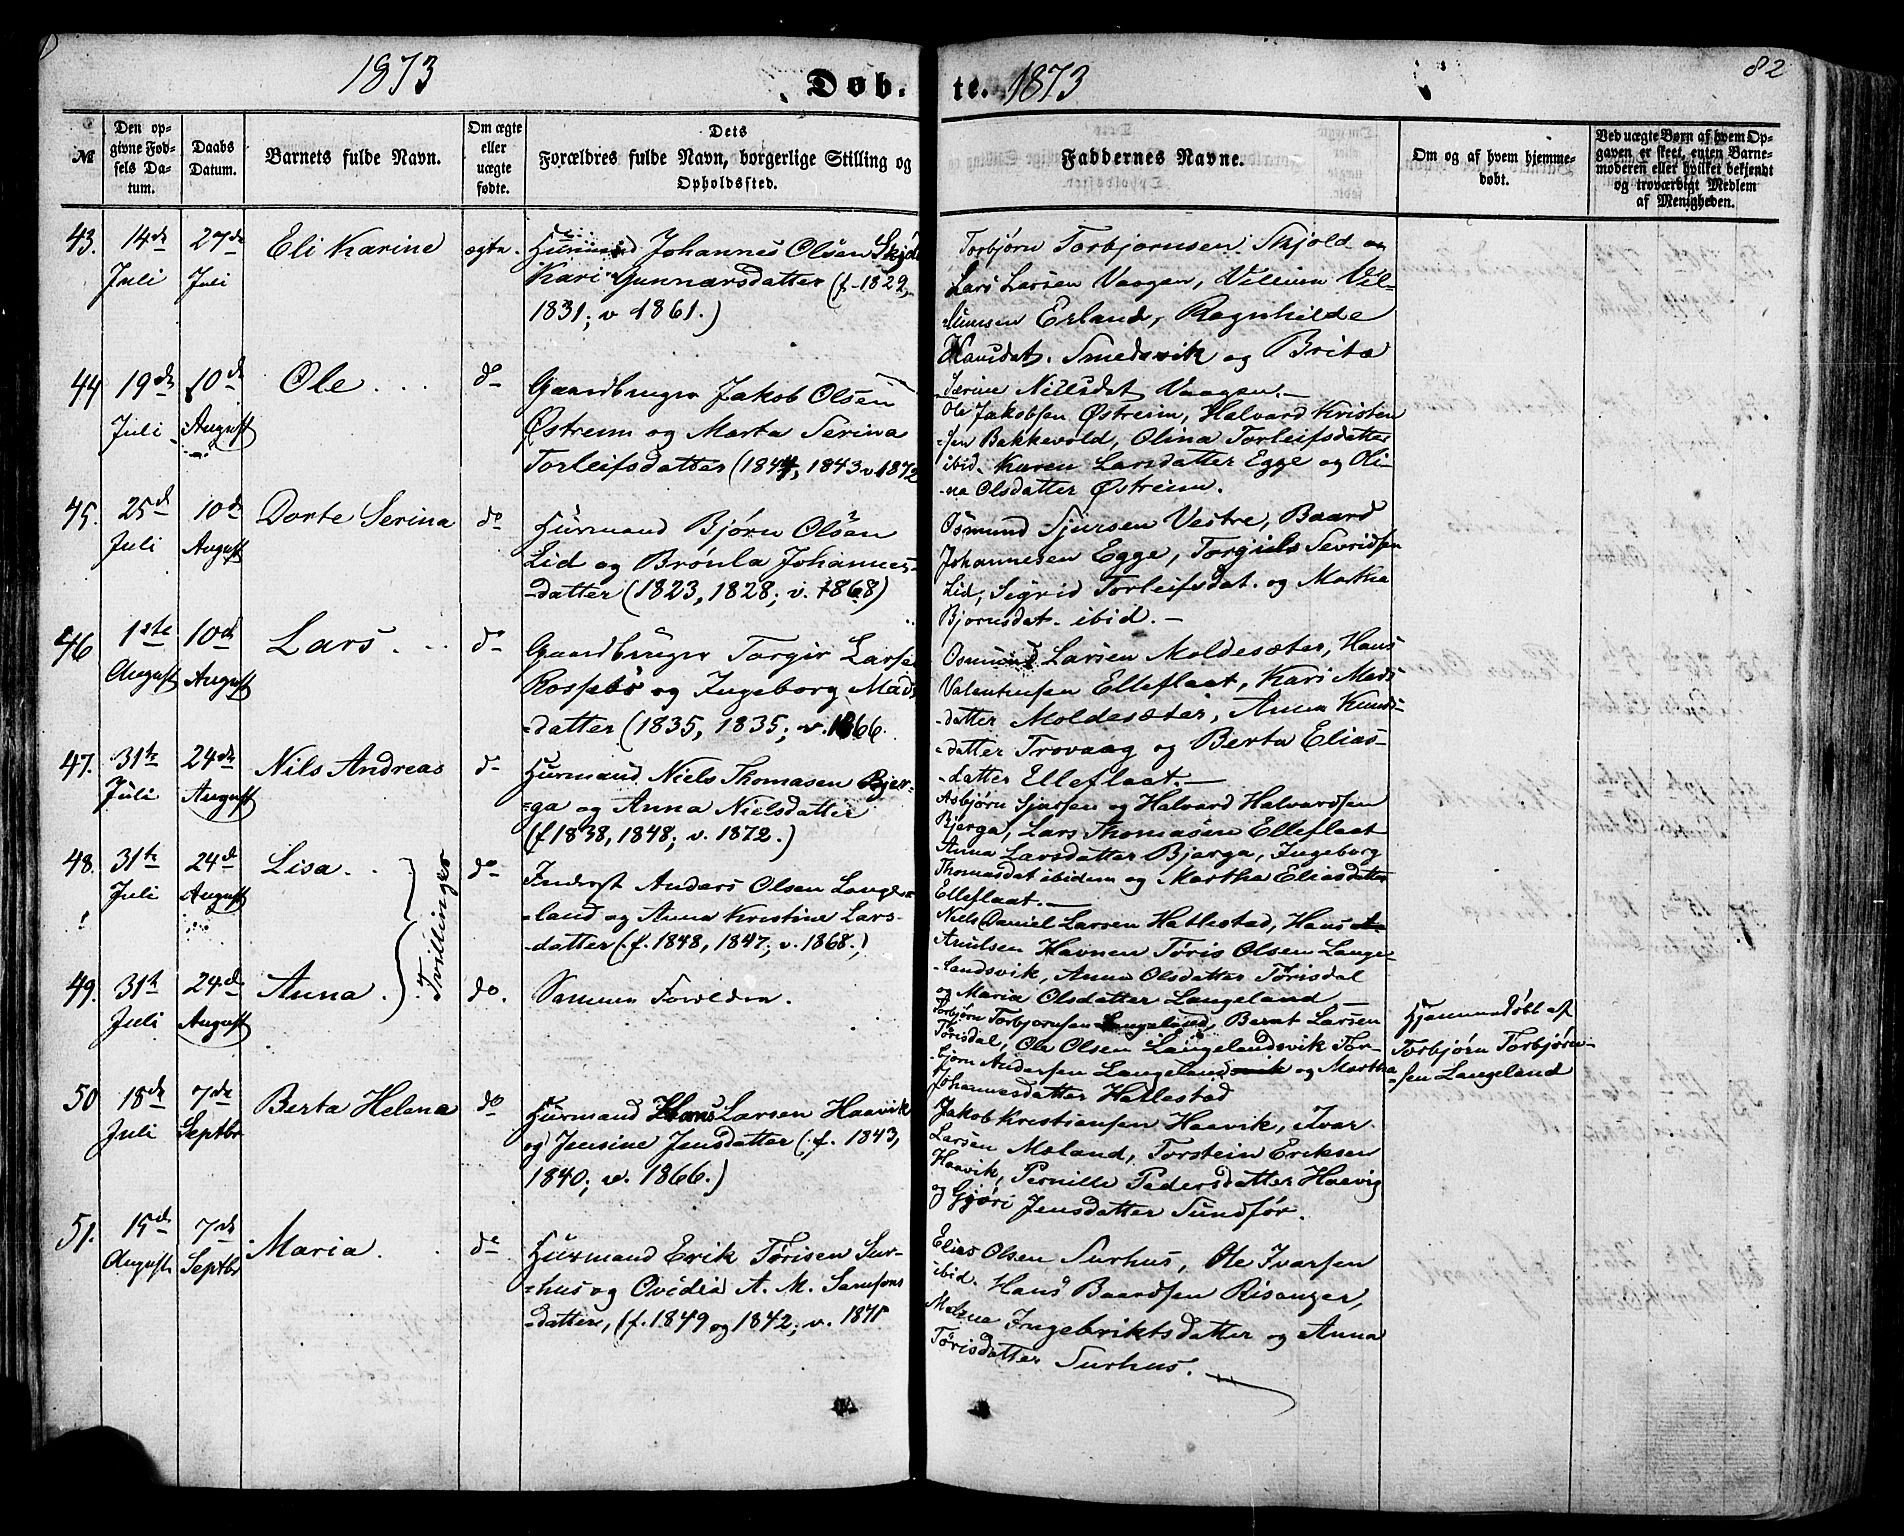 1873
Døb.
te. 1873
82
№
Den op-
givne Fød-
sels Da-
tum.
Daabs
Datum.
Barnets fulde Navn.
Om ægte
eller
uægte
fødte.
Dets
Forældres fulde Navn, borgerlige Stilling og
Opholdssted.
Faddernes Navne.
Om og af hvem hjemme-
døbt.
Ved uægte Børn af hvem Op-
gaven er skeet, enten Barne-
moderen eller hvilket bekjendt
og troværdigt Medlem
af Menigheden.
43. 14de Juli
27de Juli
Eli Karine
ægte.
Huusmand Johannes Olsen
Kari Gunnarsdatter (f. 1822,
1831; v 1861.)
Torbjørn Torbjørnsen Skjold og
Lars Larsen Vaagen, Villum Vil-
-lumsen Erland, Ragnhilde
Hansdat. Smedsvik og Brita
Serine Nilsdat Vaagen.-
44 19de Juli
10de August
Ole
do
Gaardbruger Jakob Olsen
Østreim og Marta Serina
Torleifsdatter (1844, 1843 v 1872
Ole Jakobsen Østreim, Halvard Kristen
-sen Bakkevold, Olina Torleifsdatter
ibid. Karen Larsdatter Egge og Oli-
-na Olsdatter Østreim.
45. 25de Juli
10de August
Dorte Serina
do
Huusmand Bjørn Olsen
Lid og Brønla Johannes-
-datter (1823, 1828; v. 1868)
Osmund Sjursen Vestre, Baard
Johannesen Egge, Torgils Sevridsen
Lid, Sigrid Torleifsdat. og Martha
Bjørnsdat. ibid. -
46 1ste August
10de August
Lars
do
Gaardbruger Torgir Larsen
Rossebø og Ingeborg Mads
-datter (1835, 1835; v. 1866.
Osmund Larsen Moldesæter, Hans
Valentinsen Elleflaat, Kari Mads-
-datter Moldesæter, Anna Knuds-
-datter Trovaag og Berta Elias-
-datter Elleflaat.-
47. 31te Juli
24de August
Nils Andreas
do
Huusmand Niels Thomasen Bjer-
-ga og Anna Nielsdatter
(f 1838, 1848; v. 1872.)
Asbjørn Sjursen og Halvard Halvardsen
Bjerga, Lars Thomasen Elleflaat
Anna Larsdatter Bjerga, Ingeborg
Thomasdat ibidem og Martha Eliasdatter
Elleflaat.-
48. 31te Juli
24de August
Lisa
Tvillinger
do
Inderst Anders Olsen Lange-
-land og Anna Kristine Lars-
-datter (f. 1848, 1847; v. 1868.)
Niels Daniel Larsen Hatlestad, Hans
Amlsen Havnen Tøris Olsen Lange-
-landsvik, Anna Olsdatter Tørisdal
og Maria Olsdatter Langeland -
49. 31te Juli
24de August
Anna
do.
Samme Forældre.
Torbjørn Torbjørnsen Langeland, Berat Larsen
Tørisdal, Ole Olsen Langelandsvik Tor-
-bjørn Andersen Langeland og Martha
Johannesdatter Hatlestad
Hjemmedøbt af
Torbjørn Torbjørn-
-sen Langeland
50 18de Juli
7de Septbr
Berta Helena
do
Huusmand Hans Larsen Haavik
og Jensine Jensdatter (f. 1843,
1840; v. 1866.)
Jakob Kristiansen Haavik, Ivar
Larsen Moland, Torstein Eriksen
Haavik, Pernille Pedersdatter Haavig
og Gjøri Jensdatter Sundfør.
51. 15de August
7de Septbr
Maria
do
Huusmand Erik Tørisen Sur-
-hus og Ovidia A. M. Samsons
-datter, (f. 1849 og 1842; v. 1871
Elias Olsen Surhus, Ole Ivarsen
ibid. Hans Baardsen Risanger,
Malene Ingebriktsdatter og Anna
Tørisdatter Surhus.